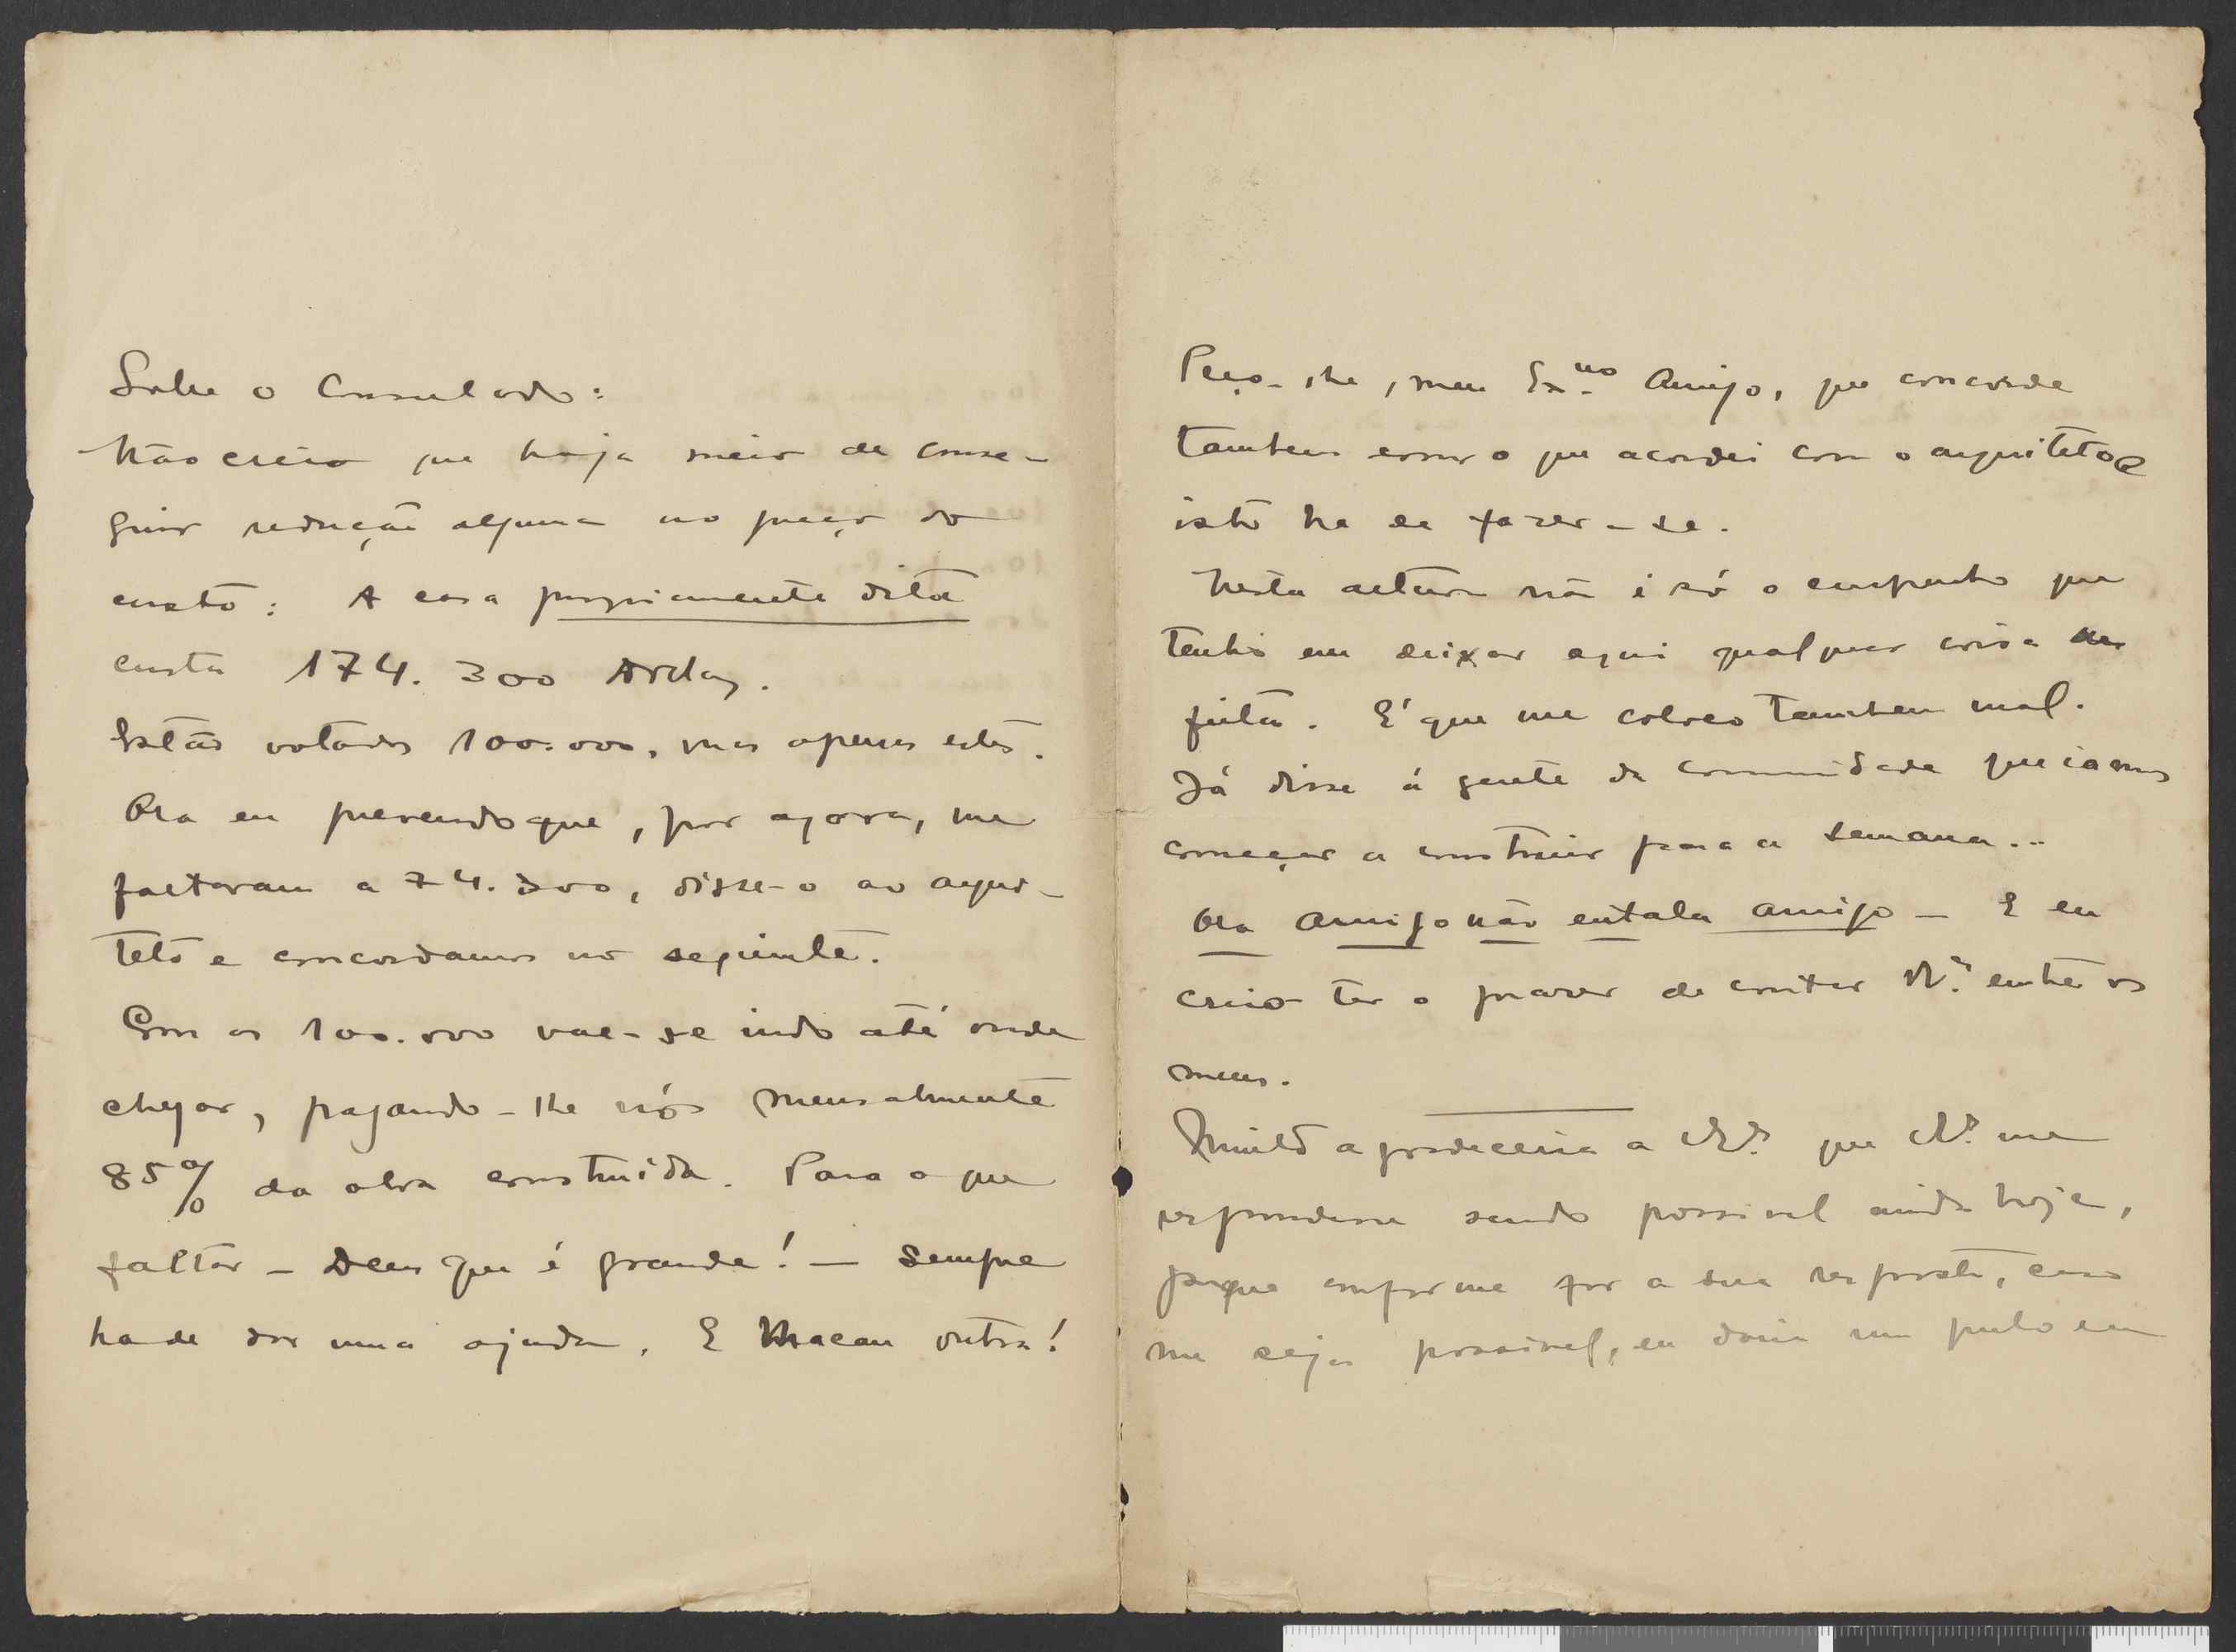 Sobre o Consulado:
Não creio que haja meio de conse-
guir redução alguma no preço do
custo: A casa propriamente dita
custa 174.300
Estão votados 100.000, mas apenas estes.
Ora eu prevendo que, por agora, me
faltavam a 74.300, disse-o ao arqui-
teto e concordamos no seguinte.
Com os 100.000 vae-se indo até onde
chegar, pagando-lhe nós mensalmente
85% da obra construida. Para o que
faltar - Deus que é grande! - sempre
ha de dar uma ajuda. E Macau outra!
Peço-lhe, meu Exmo Amigo, que concorde
tambem como o que acordei com o arquiteto e
isto ha de fazer-se.
Nesta altura não é só o empenho que
tenho em deixar aqui qualquer coisa
feita. É que me coloco tambem mal.
Já disse á gente da communidade que iamos
começar a construir para a semana...
Ora amigo não entala amigo - E eu
creio ter o prazer de contar V. entre os
meus.
Muito agradeceria a V. que V. me
respondesse sendo possivel ainda hoje,
porque conforme for a sua resposta, caso
me seja possivel, eu daria um pulo em